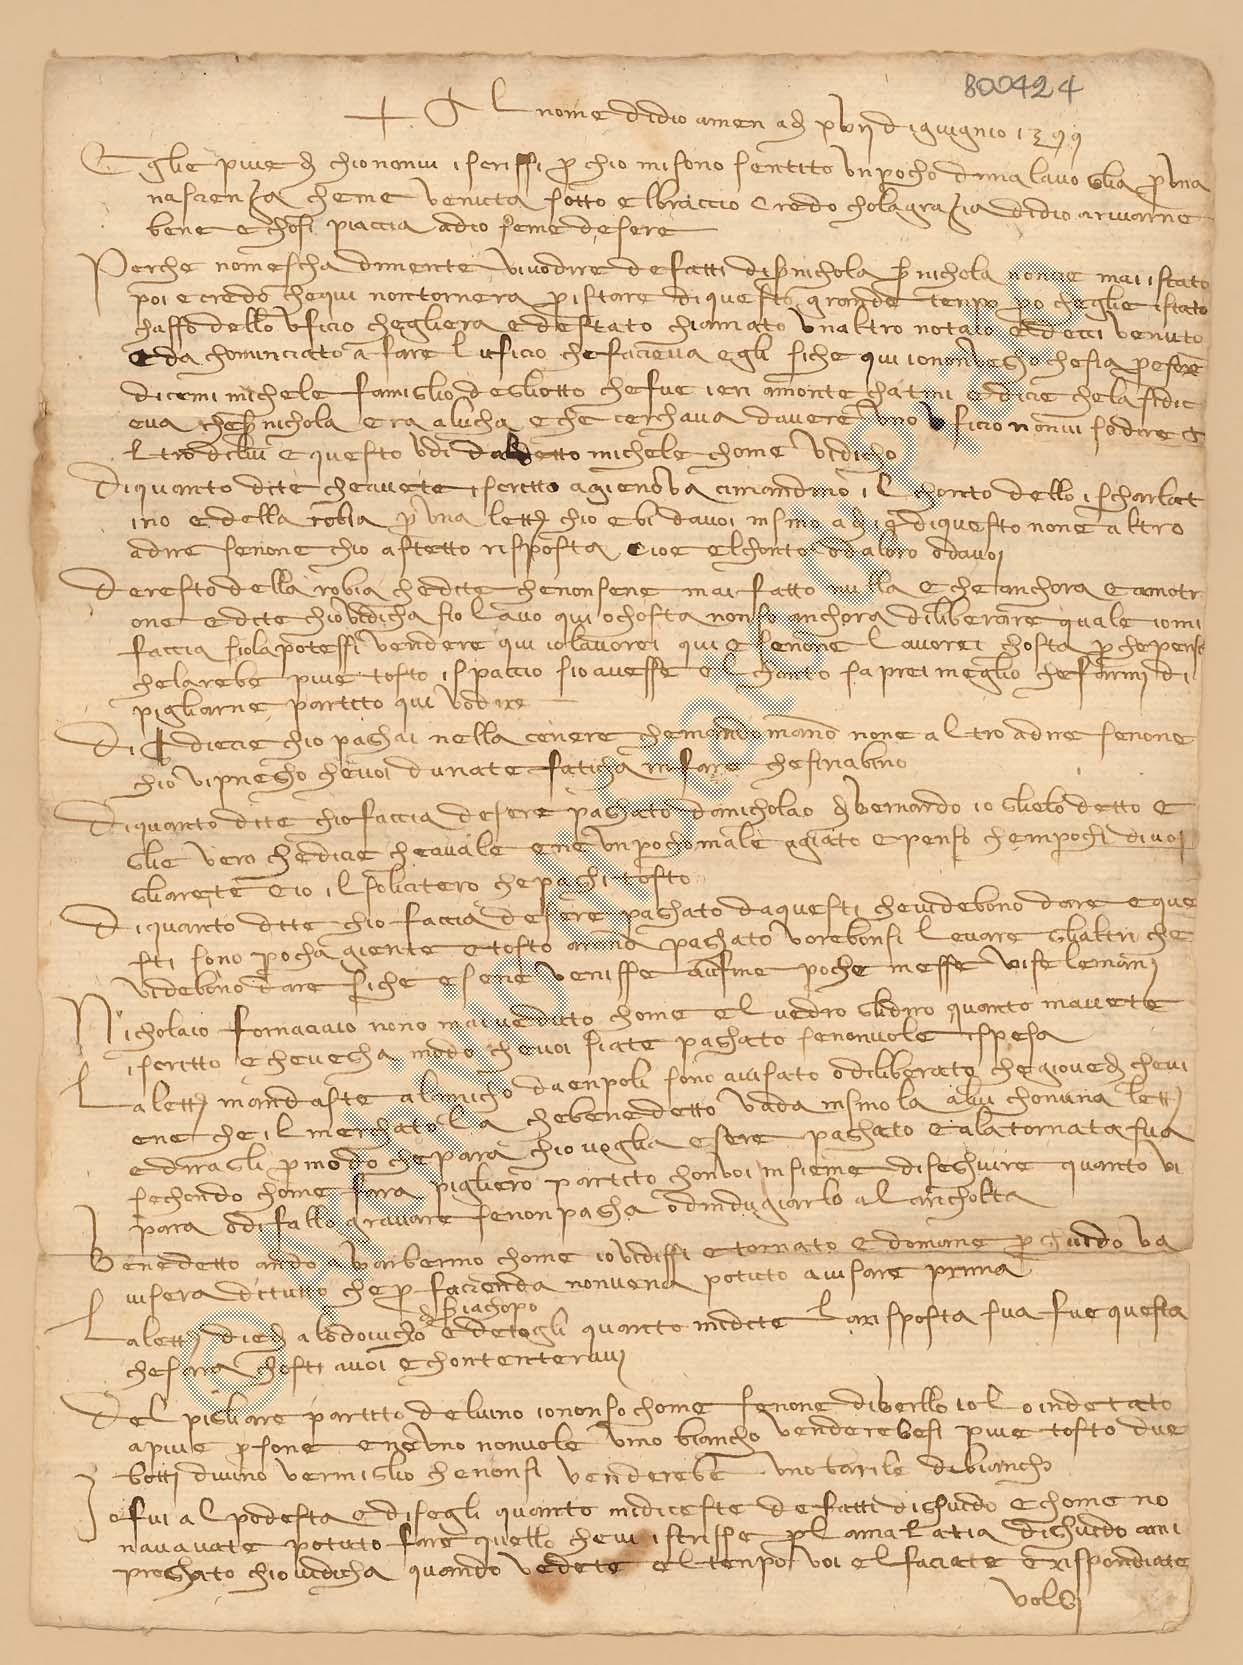 800424
+ Al nome di dio amen adì xvij di giugnio 1399
Eglie piue dì chio nonvui iscrissi p chio misono sentito unpocho dimalavoglia p una
nascienza cheme venuta sotto elbraccio credo cholagrazia didio arivarne
bene e chosi piaccia adio seme desere
Perche nomescha dimente vivodire defatti di s nichola s nichola none mai istato
poi e credo chequi nontornera p istare di questo grande tenpo po cheglie istato
chasso dello uficio chegliera edestato chiamato unaltro notaio edecci venuto
eda chominciato afare luficio chefacieva egli siche qui iononvegho chesia p esere
dicemi michele famiglio degliotto chefue ieri amonte chatini edicie chelasidic
eva che s nichola era alucha e che cerchava davere uno uficio nonvi sodire a
ltro dilui e questo udi daldetto michele chome vidicho
Diquanto dite cheavete iscritto agienova cimandino il chonto dello ischarlat
ino e della robia p una lettera chio ebi davoi insino adì diquesto none altro
adire senone chio aspetto risposta cioe elchonto odaloro odavoi
Deresto della robia chedite chenonsene mai fatto nulla e cheanchora e amotr
one edite chiovidicha sio lavo qui ochosta nonso anchora diliberare quale iomi
faccia siolapotessi vendere qui iolavorei qui esenone lavorei chosta p chepenso
chelarebe piue tosto ispaccio sioavesse elchonto saprei meglio chefarmi di
pigliarne partito qui vodire
Di diecie chio paghai nella cienere chemandomano none altro adire senone
chio vipriegho chevoi durate faticha infare chesiriabino
Diquanto dite chiofaccia desere paghato danicholao di bernardo io glielo detto e
glie vero chedicie cheavale ene unpochomale agiato epenso chempochi divoi
gliarete eio il soliciterò chepaghi tosto
Diquanto dite chio faccia desere paghato daquesti chevidebono dare eque
sti sono pocha giente etosto arano paghato vorebonsi levare glialtri che
videbono dare siche esene venisse alafine poche messe visele mani
Nicholaio fornaciaio nono maiveduto chome elvedro glidiro quanto mavete
iscritto echevegha modo chevoi siate paghato senonvole ispesa
Lalettera mandaste alamicho daenpoli sono avisato odiliberato chegiovedì chevi
ene che il merchato la chebenedetto vada insinola alui chonuna lettera
ediragli p modo chepara chio voglia esere paghato ealatornata sua
sechondo chome fara pigliero partito chonvoi insieme diseghuire quanto vi
para odi fallo gravare senonpagha odindugiarlo alaricholta
Benedetto ando abarberino chome iovidissi etornato e domane p ghuido va
visera dituto che p facienda nonvena potuto avisare prima
Lalettera diedi alodovicho di s iachopo edetogli quanto midite larisposta sua fue questa
chesara chosti avoi echontenteravi
Del pigliare partito delvino iononso chome senone diberllo iolo indetato
apiue p sone enevno nonvole vino biancho venderebesi piue tosto due
botti divino vermiglio chenonsi venderebe unobarile dibiancho
Io fui alpodesta edisegli quanto midiceste defatti dighuido echome no
navavate potuto fare quello chevi iscrisse p lamalatia dighuido ami
preghato chiovidicha quando vedete eltenpo voi elfaciate erispondiate
volgi